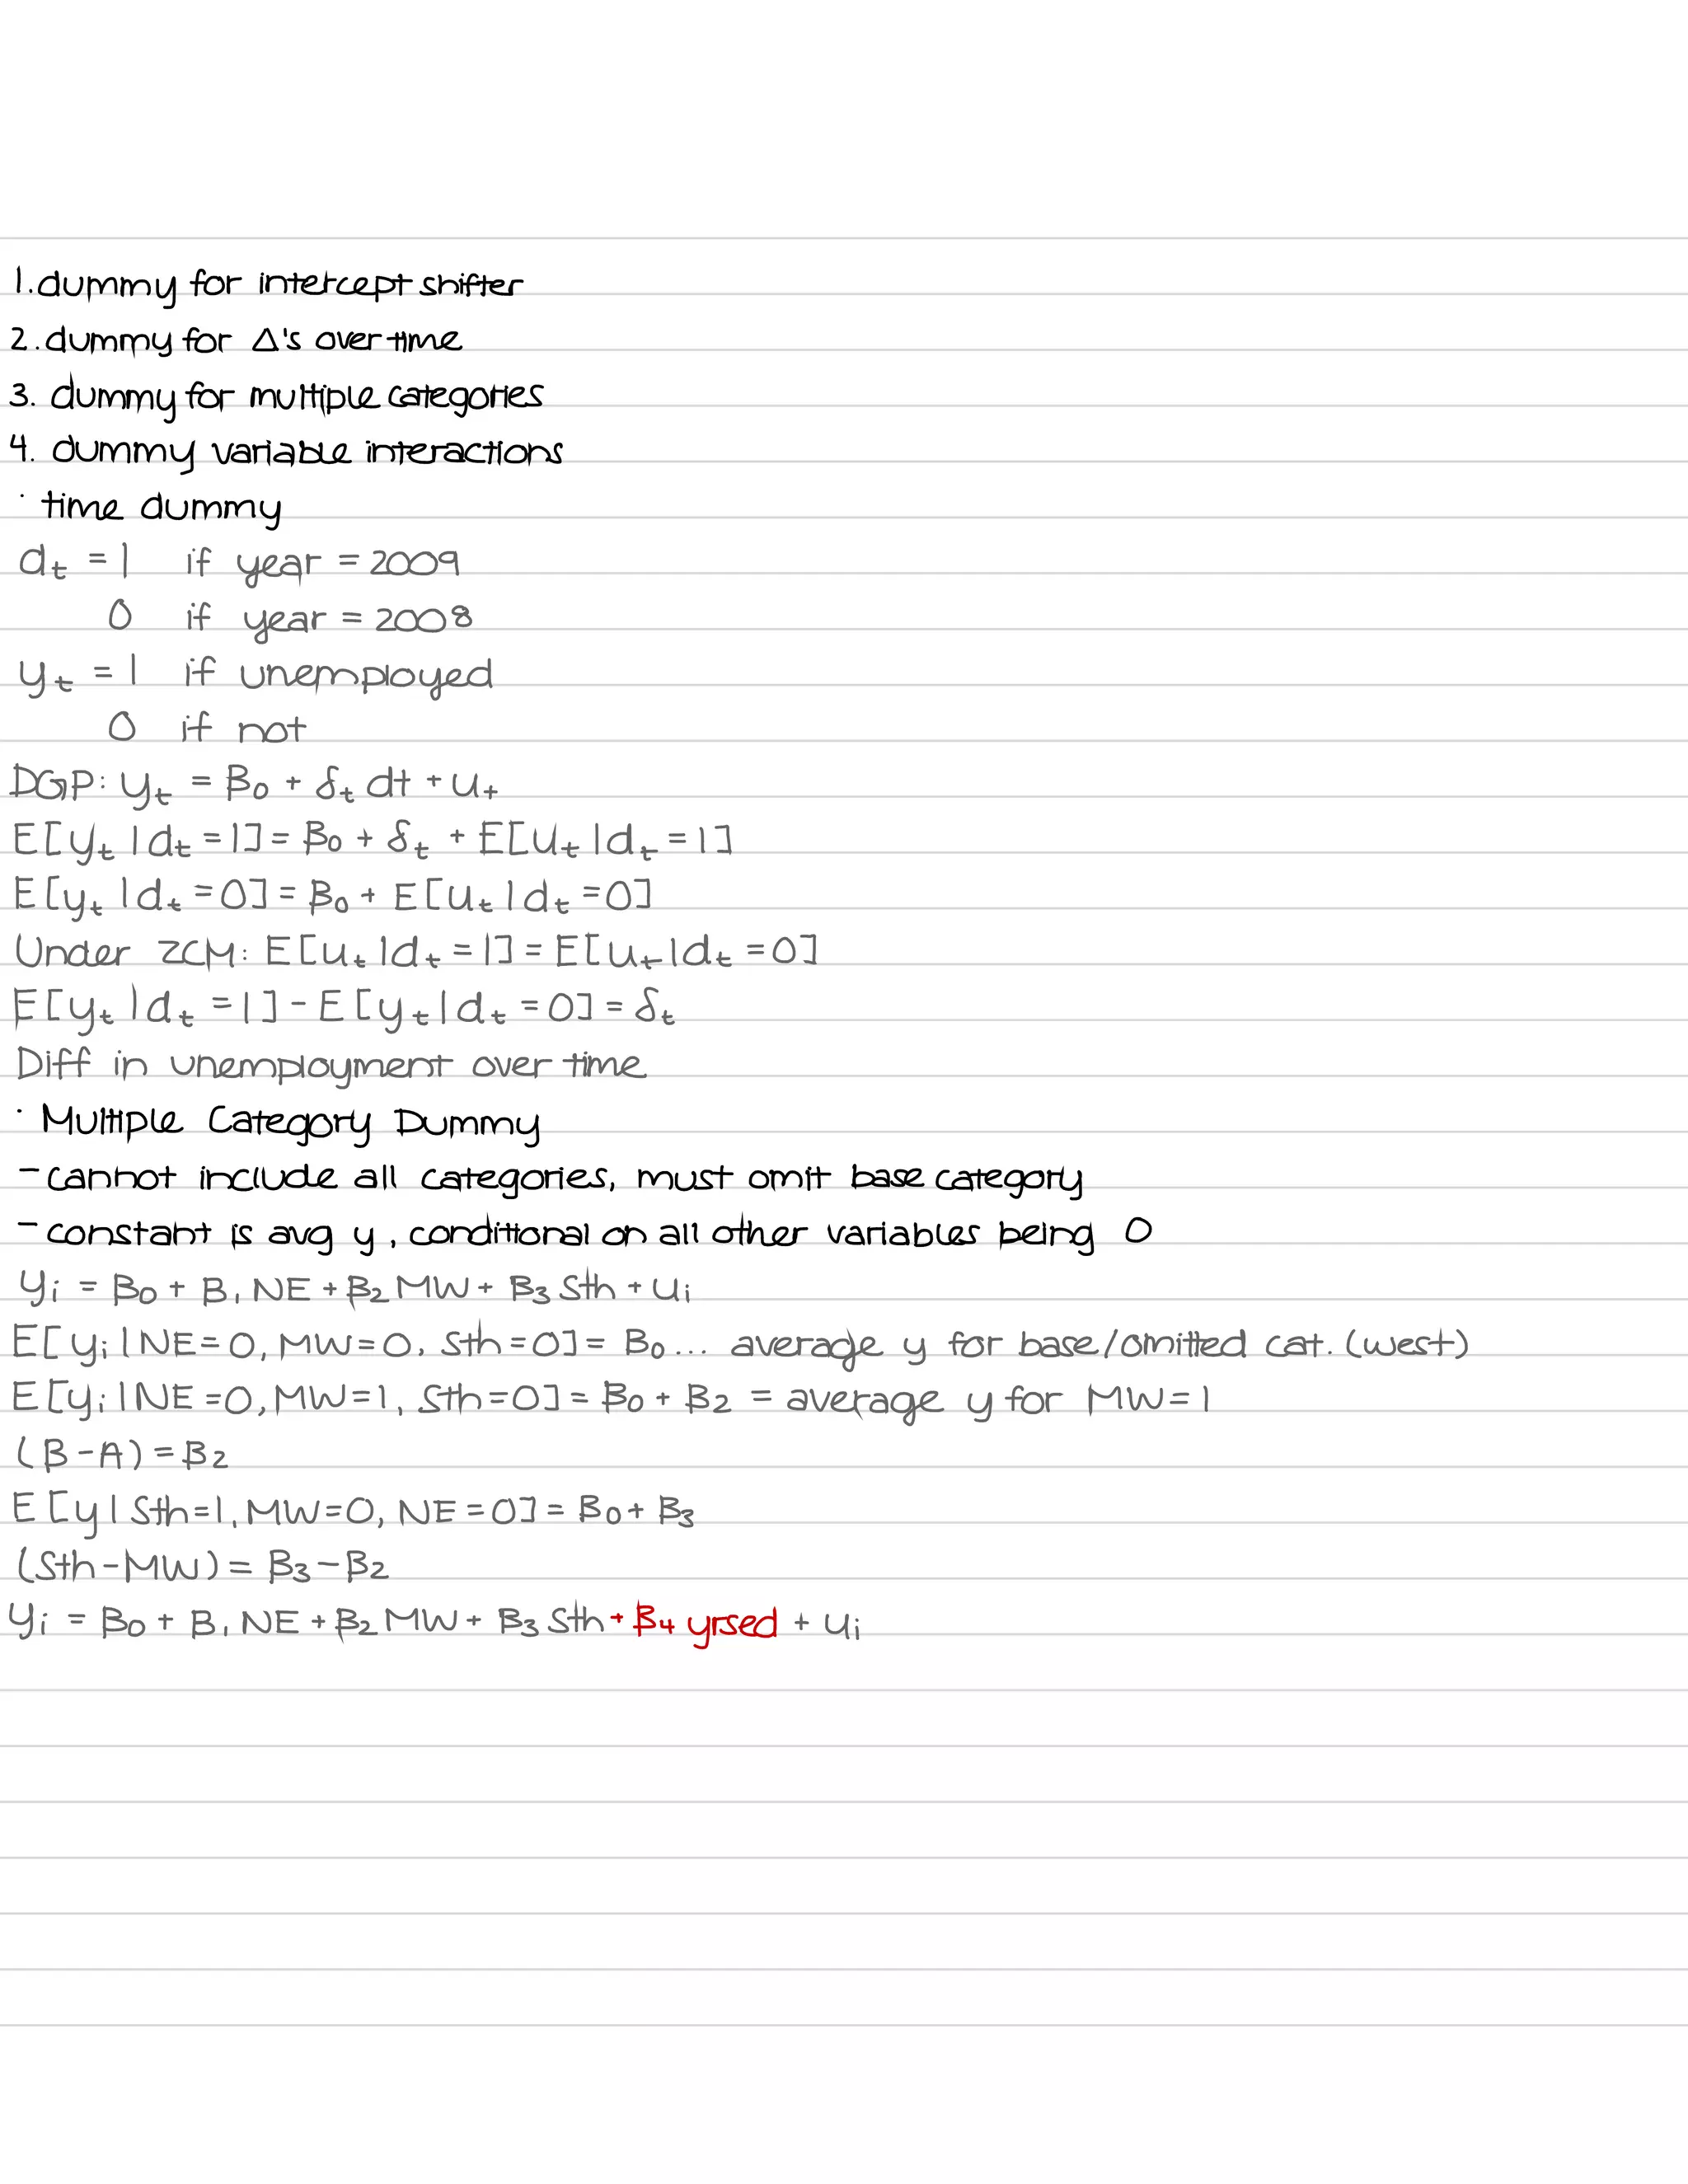 1. dummy for intercept shifter
2. dummy for Δ's over time
3. dummy for multiple categories
4. dummy variable interactions
· time dummy
d_t = 1 if year = 2009
0 if year = 2008
y_t = 1 if unemployed
0 if not
DGP: y_t = B₀ + δ_t dt + u_t
E[y_t | d_t = 1] = B₀ + δ_t + E[u_t | d_t = 1]
E[y_t | d_t = 0] = B₀ + E[u_t | d_t = 0]
Under ZCM: E[u_t | d_t = 1] = E[u_t | d_t = 0]
E[y_t | d_t = 1] - E[y_t | d_t = 0] = δ_t
Diff in unemployment over time
· Multiple Category Dummy
- cannot include all categories, must omit base category
- constant is avg y, conditional on all other variables being 0
y_i = B₀ + B₁ NE + B₂ MW + B₃ Sth + u_i
E[y_i | NE=0, MW=0, Sth=0] = B₀... average y for base/omitted cat. (west)
E[y_i | NE=0, MW=1, Sth=0] = B₀ + B₂ = average y for MW=1
(B-A) = B₂
E[y | Sth=1, MW=0, NE=0] = B₀ + B₃
(Sth-MW) = B₃-B₂
y_i = B₀ + B₁ NE + B₂ MW + B₃ Sth + B₄ yrsed + u_i